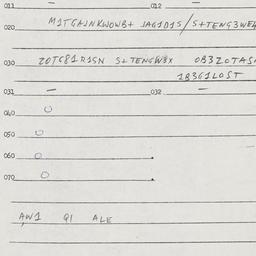 011 — 012 —
020 M1TGAJNKWOWB+ JAG1D1S/S+TENG3WEH
030 ZOTC81R1SN S+TENGWBX OB3ZOTASA
1B3G1LOST
031 — 032 —
040 O
050 O
060 O
070 O
AW1 Q1 ALE